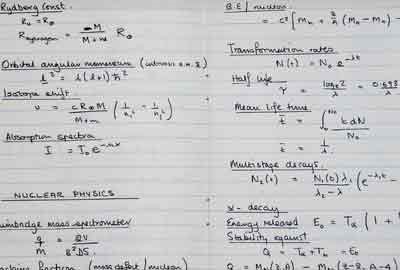 Rydberg Const.
R₀ = R∞
R hydrogen = M / M+m R∞
Orbital angular momentum (intrinsic
l² = l(l+1)ħ²
Isotope shift.
ν = cR∞M / M+m (1/n₁² - 1/n₂²)
Absorption spectra
I = I₀e
NUCLEAR PHYSICS
Bainbridge mass spectrometer
q/M = 2V / B²DS
fraction (mass defect/nucleon)
B.E / nucleon
= c² [Mn + Z/A (MH - Mn) -
Transformation rates
N(t) = N₀e^-λt
Half life
τ = loge2 / λ = 0.693 / λ
Mean life time
t̄ = ∫₀^N₀ t dN / N₀
t̄ = 1/λ
Multistage decays.
N₂(t) = N₁(0)λ₁ / λ₂ - λ₁ (e^-λ₁t -
α - decay
Energy released E₀ = Tα (1 +
Stability against
Q = Tα + Tb = E₀
Q = M (Z,A) - M (Z-2, A-4)